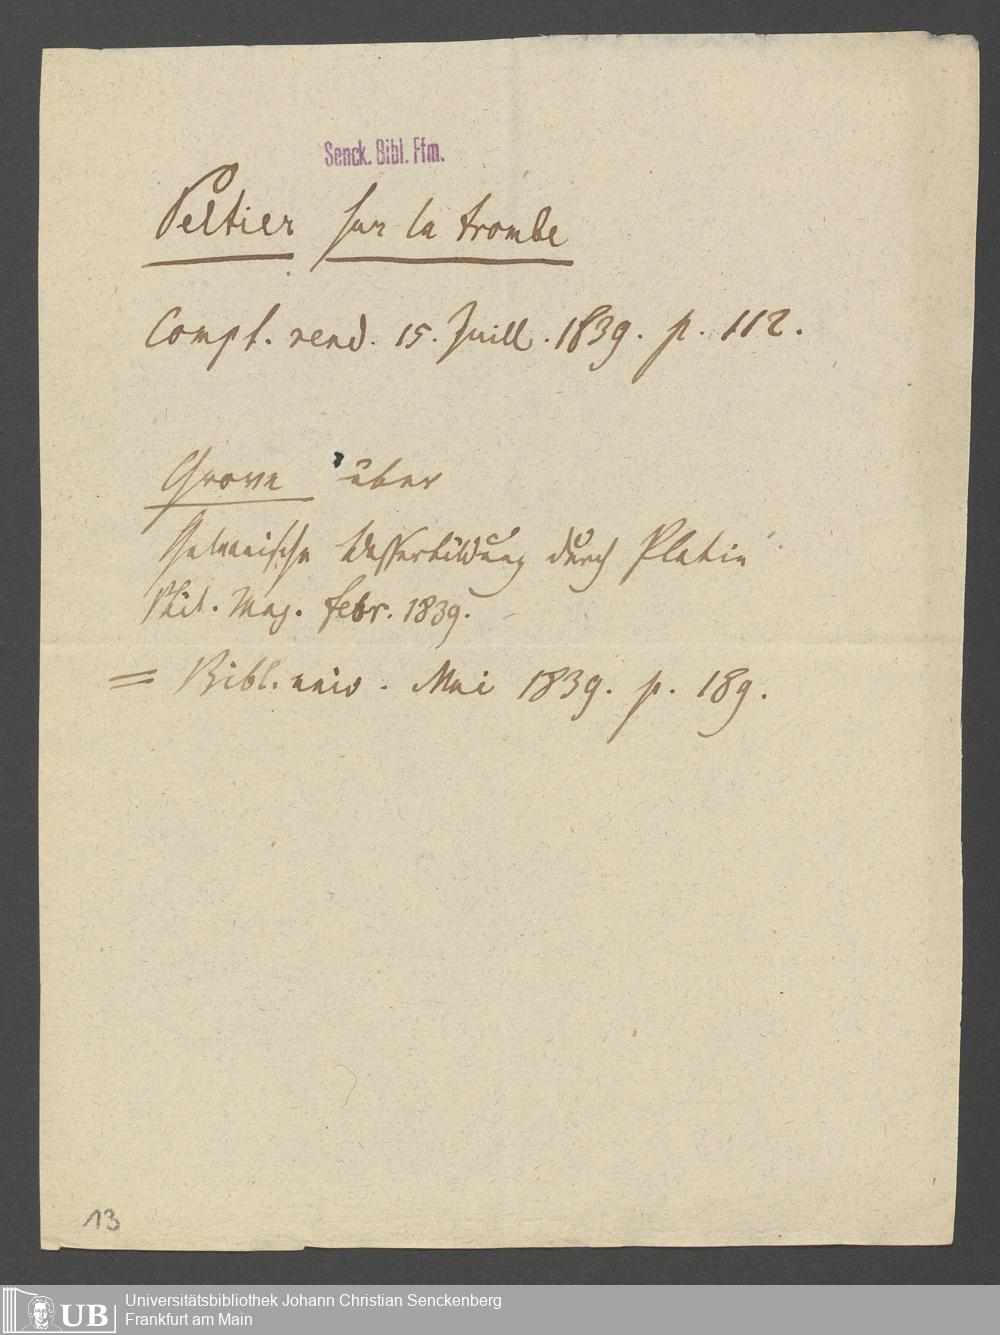 Senck. Bibl. Ffm.
Peltier sur la trombe
Compt. rend. 15. Juill. 1839. p. 112.
Grove über
Galvanische Wasserbildung durch Platin
Phil. Mag. febr. 1839.
= Bibl. univ. Mai 1839. p. 189.
13
UB
Universitätsbibliothek Johann Christian Senckenberg
Frankfurt am Main